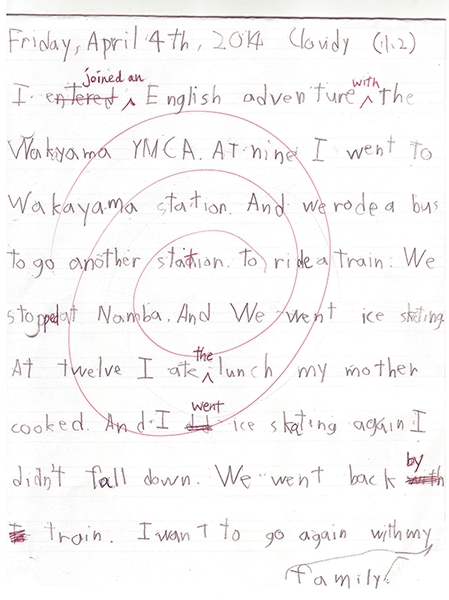 Friday, April 4th, 2014 Cloudy (11.2)
joined an with
I entered ^ English adventure ^ the
Wakayama YMCA. At nine I went to
Wakayama station. And we rode a bus
to go another station. to ride a train. We
stopped at Namba. And We went ice skating.
the
At twelve I ate ^ lunch my mother
went
cooked. And I did ice skating again I
by
didn't fall down. We went back with
I train. I want to go again with my
family.